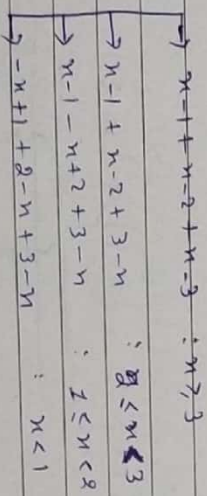 x-1+x-2+x-3 : x≥3
x-1+x-2+3-x : 2≤x<3
x-1-x+2+3-x : 1≤x<2
-x+1+2-x+3-x : x<1